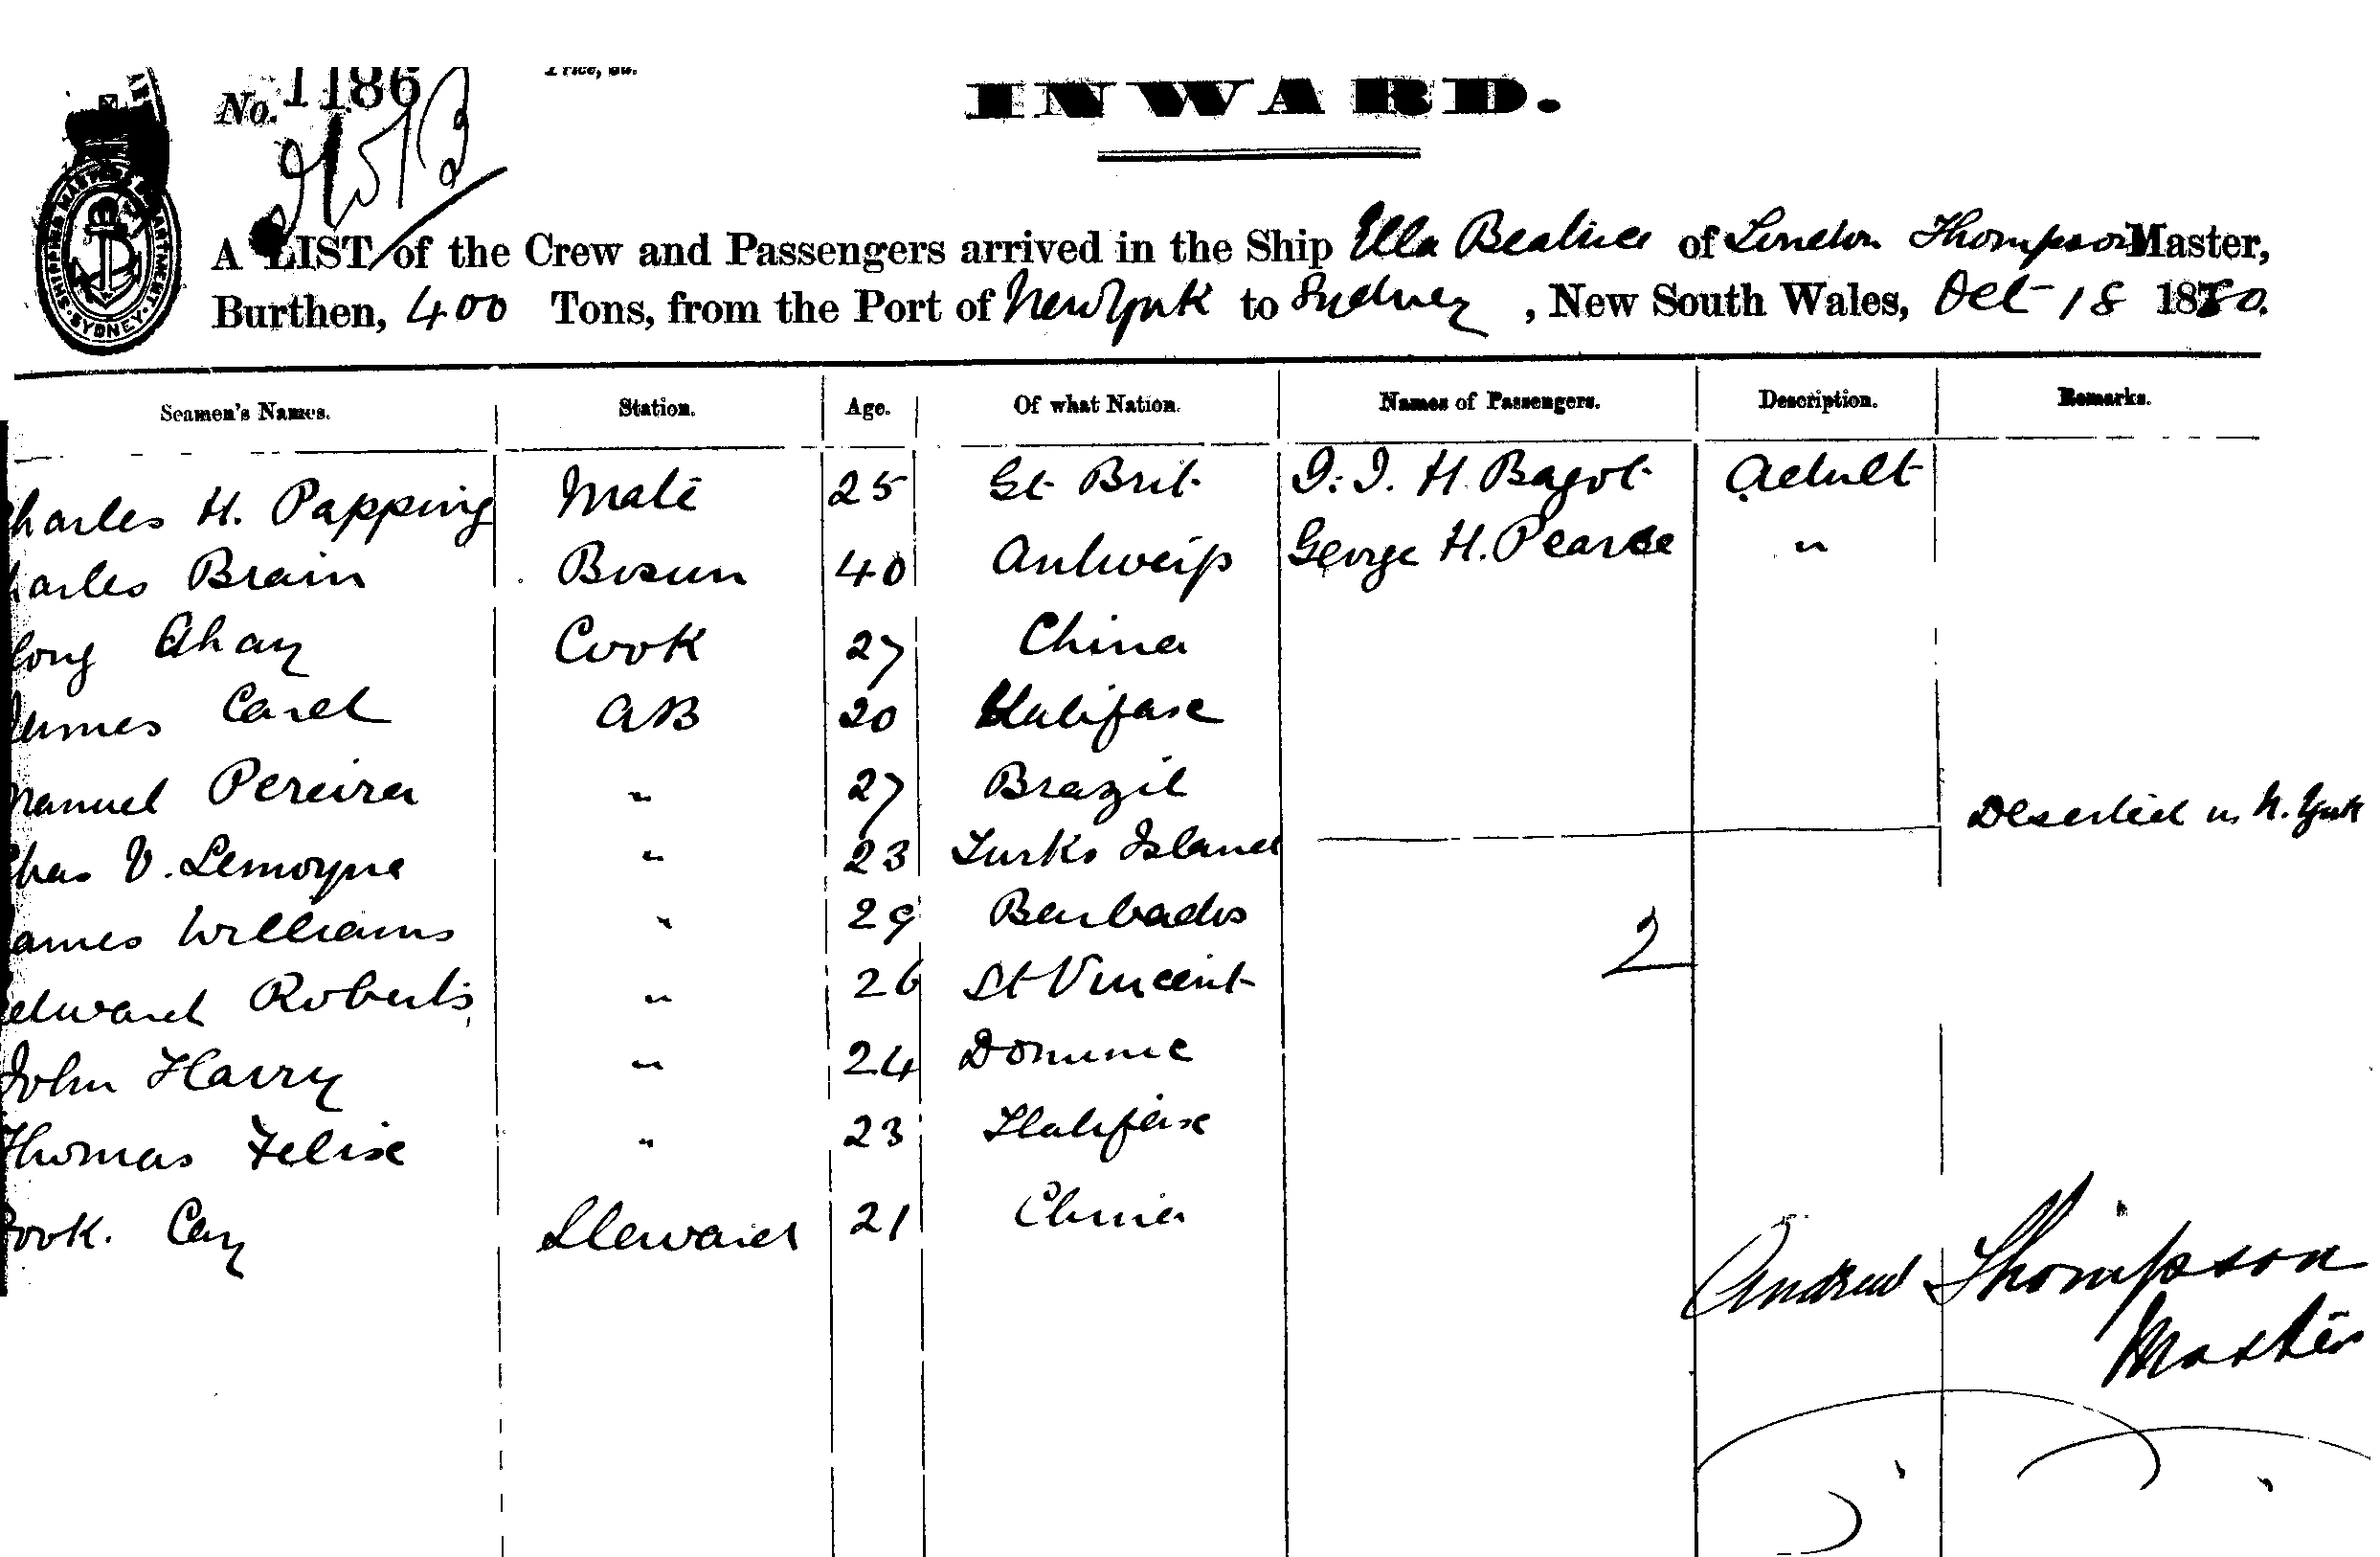 No. 1186
Price, 3d.
INWARD.
A LIST of the Crew and Passengers arrived in the Ship Ella Beatrice of London Thompson Master,
Burthen, 400 Tons, from the Port of New York to Sydney, New South Wales, Oct 18 1880.
Seamen's Names. Station. Age. Of what Nation. Names of Passengers. Description. Remarks.
Charles H. Papping Mate 25 Gt Brit H. Bagot Adult
Charles Brain Bosun 40 Antwerp George H. Pearce "
Ahay Cook 27 China
James Carel AB 20 Halifax
Manuel Pereira " 27 Brazil
Chas V. Lemoyne " 23 Turks Island Deserted in N. York
James Williams " 29 Barbados
2
Edward Roberts " 26 St Vincent
John Harry " 24 Dominic
Thomas Felix " 23 Halifax
Cay Steward 21 China
Andrew Thompson
Master
SHIPPING MASTER'S DEPARTMENT
SYDNEY